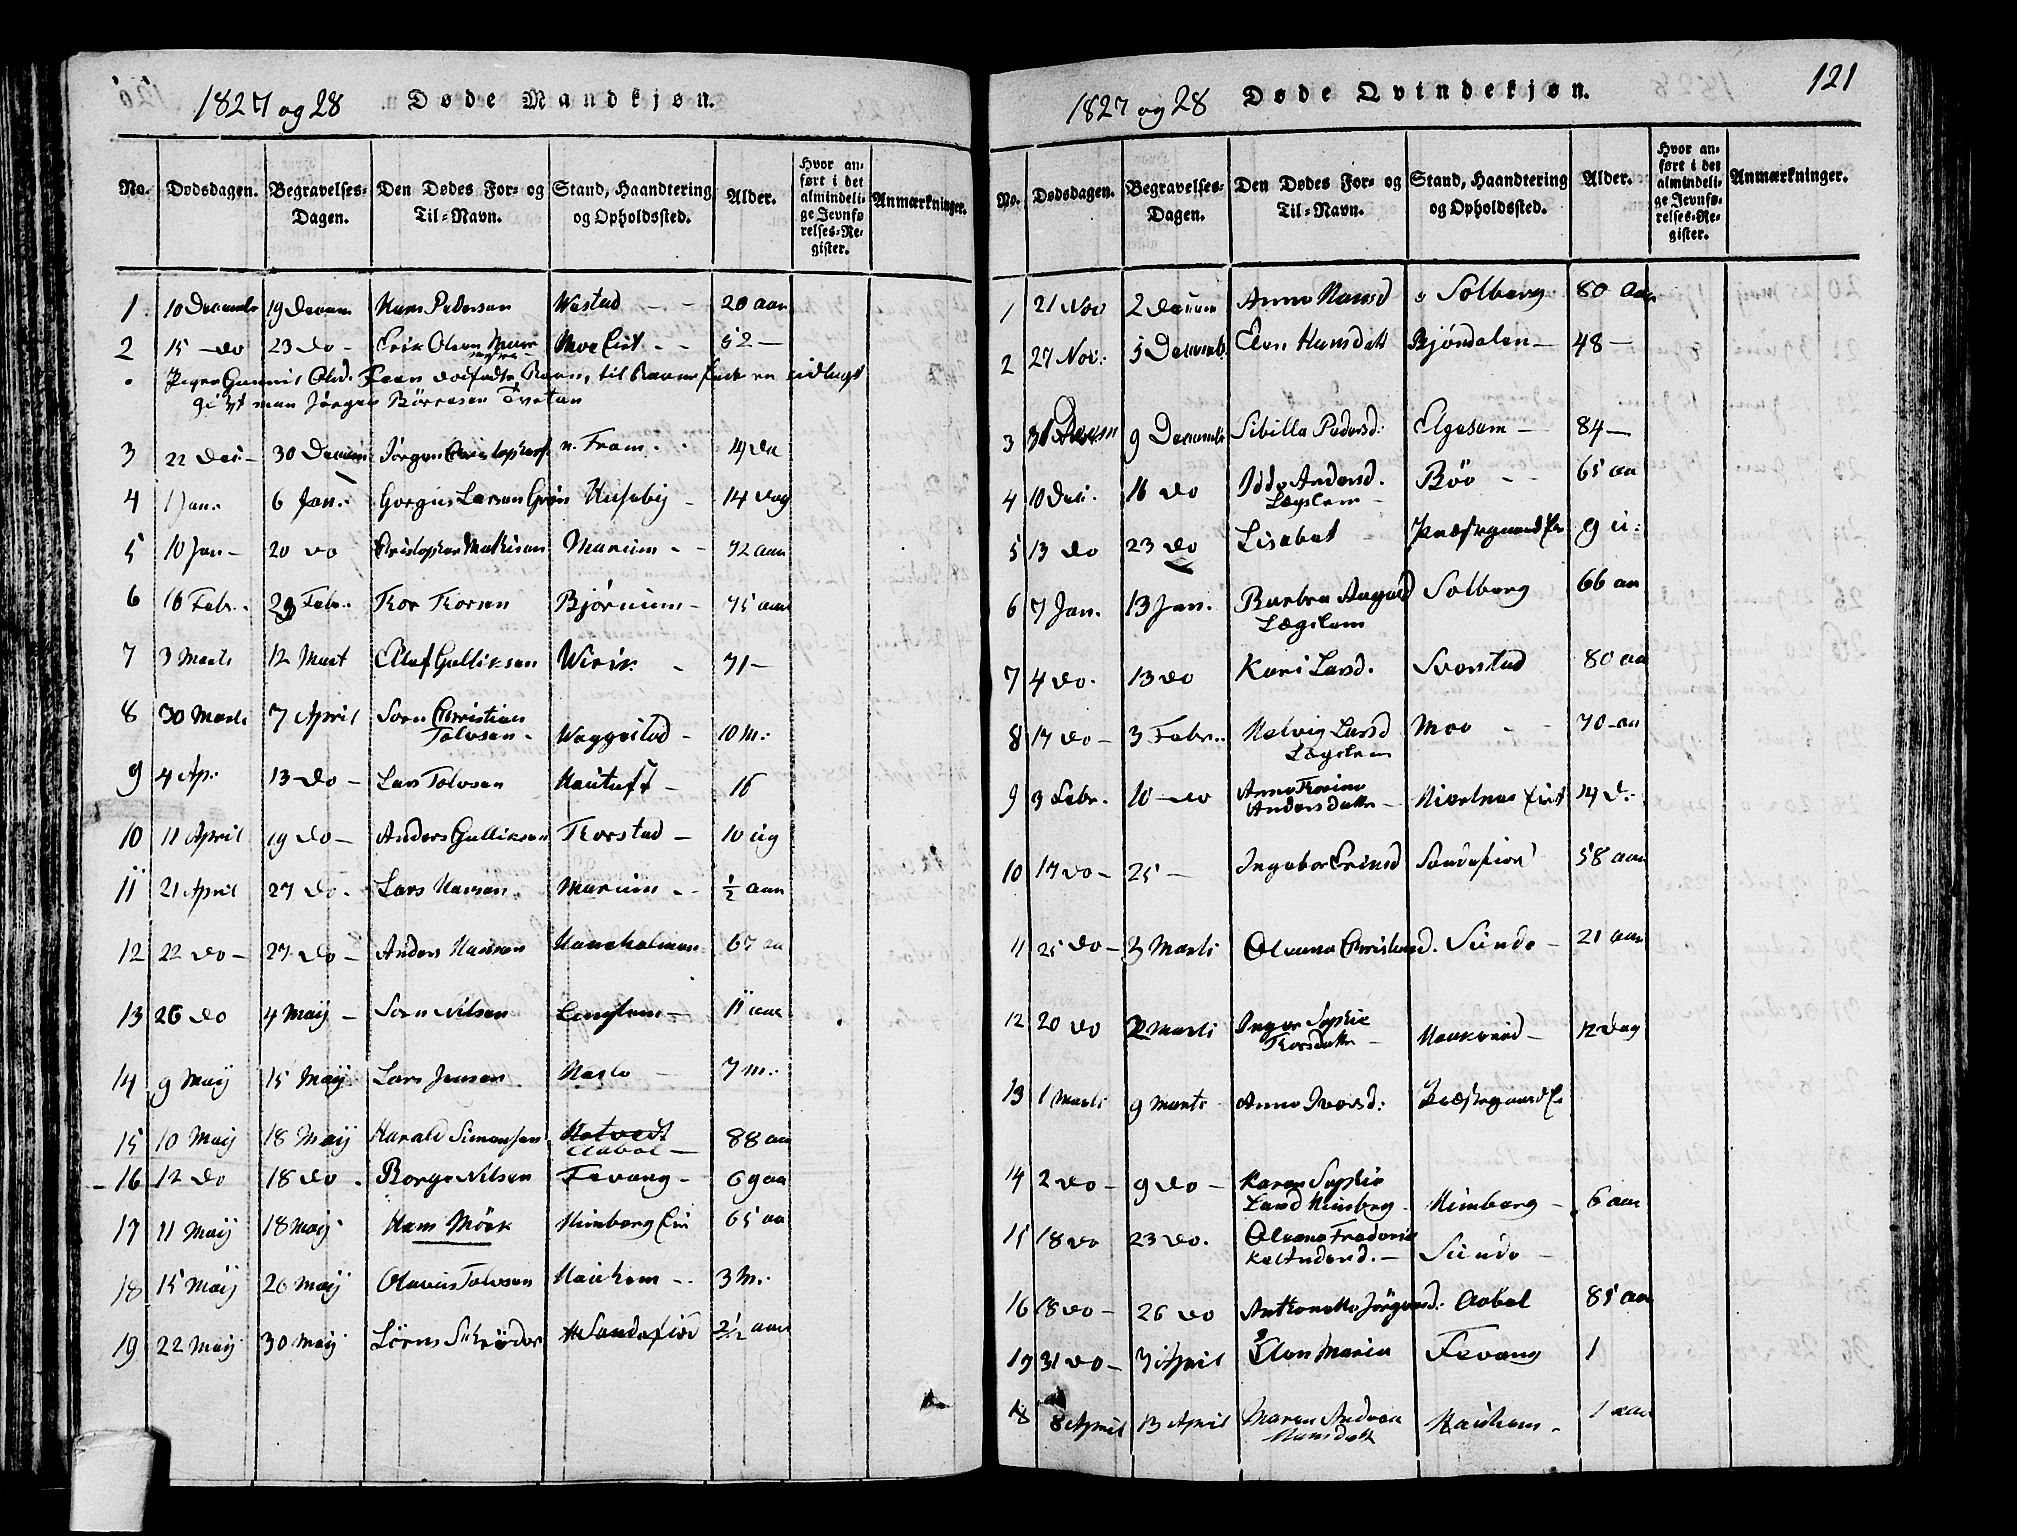 1827 og 28 Døde Mandkjøn.
No. Dødsdagen. Begravelses-Dagen. Den Dødes For- og Til-Navn. Stand, Haandtering og Opholdssted. Alder. Hvor anført i det almindelige Jevnførelses-Register. Anmærkninger.
1 10 Decembr 19 Decem Hans Pedersen Westad - - 20 aar
2 15 do 23 do - Erik Olsen Moe Eiet - - 52 -
Pigen Gunnil Olsd. Feen
gift man Jørgen Børresen Tvetan
3 22 Dec - 30 Decem Jørgen Christophers n. Fram - 4 da
4 1 Jan: 6 Jan: Gorgius Larsen Grøn Huseby - 14 dag
5 10 Jan - 20 do Christopher Mathisen Marum - - 72 aar
6 16 Febr: Febr: Tor Torsen Bjørnum - 75 aar
7 3 Marti 12 Mart Olaf Gulliksen Wirik - 71 -
8 30 Marti 7 April Sorn Christian
Tolvsen - Waggestad - 10 M:
9 4 Ap: 13 do - Lars Tolvsen Hautuft - 16
10 11 April 19 do - Anders Gulliksen Torstad - 10 ug
11 21 April 27 do - Lars Hansen Marum - - ½ aar
12 22 do - 27 do - Anders Hansen Haneholmen 67 aa
13 26 do 4 Maij - Sorn Nilsen Langlem - 11 aar
14 9 Maij 15 Maij Lars Jensen Hasle - 7 m:
15 10 Maij 18 Maij Harald Simonsen Hotvedt
Aabøl - 88 aar
16 12 do 18 do - Borge Nilsen Fevang - 69 aa
17 11 Maij 18 Maij Hans Mörk Himberg Eie 65 aa
18 15 Maij 26 Maij Olavus Tolvsen Hauchem - - 3 M:
19 22 Maij 30 Maij Lörns Schrøder Sandefiord 2½ aar
1827 og 28 Døde Qvindekjøn. 121
No. Dødsdagen. Begravelses-Dagen. Den Dødes For- og Til-Navn. Stand, Haandtering og Opholdssted. Alder. Hvor anført i det almindelige Jevnførelses-Register. Anmærkninger.
1 21 Nov 2 Decem Anne Hansd Solberg 80 Aar
2 27 Nov: 5 Decemb. Elen Hansdat Bjøndalen - 48 -
3 9 Decembr Sibille Pedersd: Elgesem - 84 -
4 10 Dec. 16 do Idde Andersd.
Lægslem - Böö - - 65 aa
5 13 do 23 do Lisabet Præstegaard Ei 9 u:
6 7 Jan. 13 Jan. Barbra Aagesd
Lægslem Solberg 66 aa
7 4 do. 13 do Kari Larsd. Sverstad 80 aa
8 17 do - 3 Febr: Helvig Larsd
Lægslem Moe - - 70 aa
9 3 Febr. 10 do Anne Trine
Andersdatter - Hiertnes Eiet 14 D:
10 17 do - 25 - Ingebor Erensd Sandefiord 58 aar
11 25 do - 3 Marti Oleana Christensd. Sunde - 21 aar
12 20 do 2 Marti Inger Sophie
Torsdatter - Haukerød - 12 dag
13 1 Marti 9 Marti Anne Iversd: Præstegaard Ei
14 2 do - 9 do - Karen Sophie
Larsd Himberg - Himberg - 6 aar
15 18 do 23 do. Oleana Frederik
ke Andersd. - Sunde -
16 18 do - 26 do Anthonette Jörgensd: Aabøl 85 aar
17 31 do - 3 April Elen Maria Fevang 1
18 8 April 13 April Maren Andrea
Hansdatt Hauchem - 1 aar